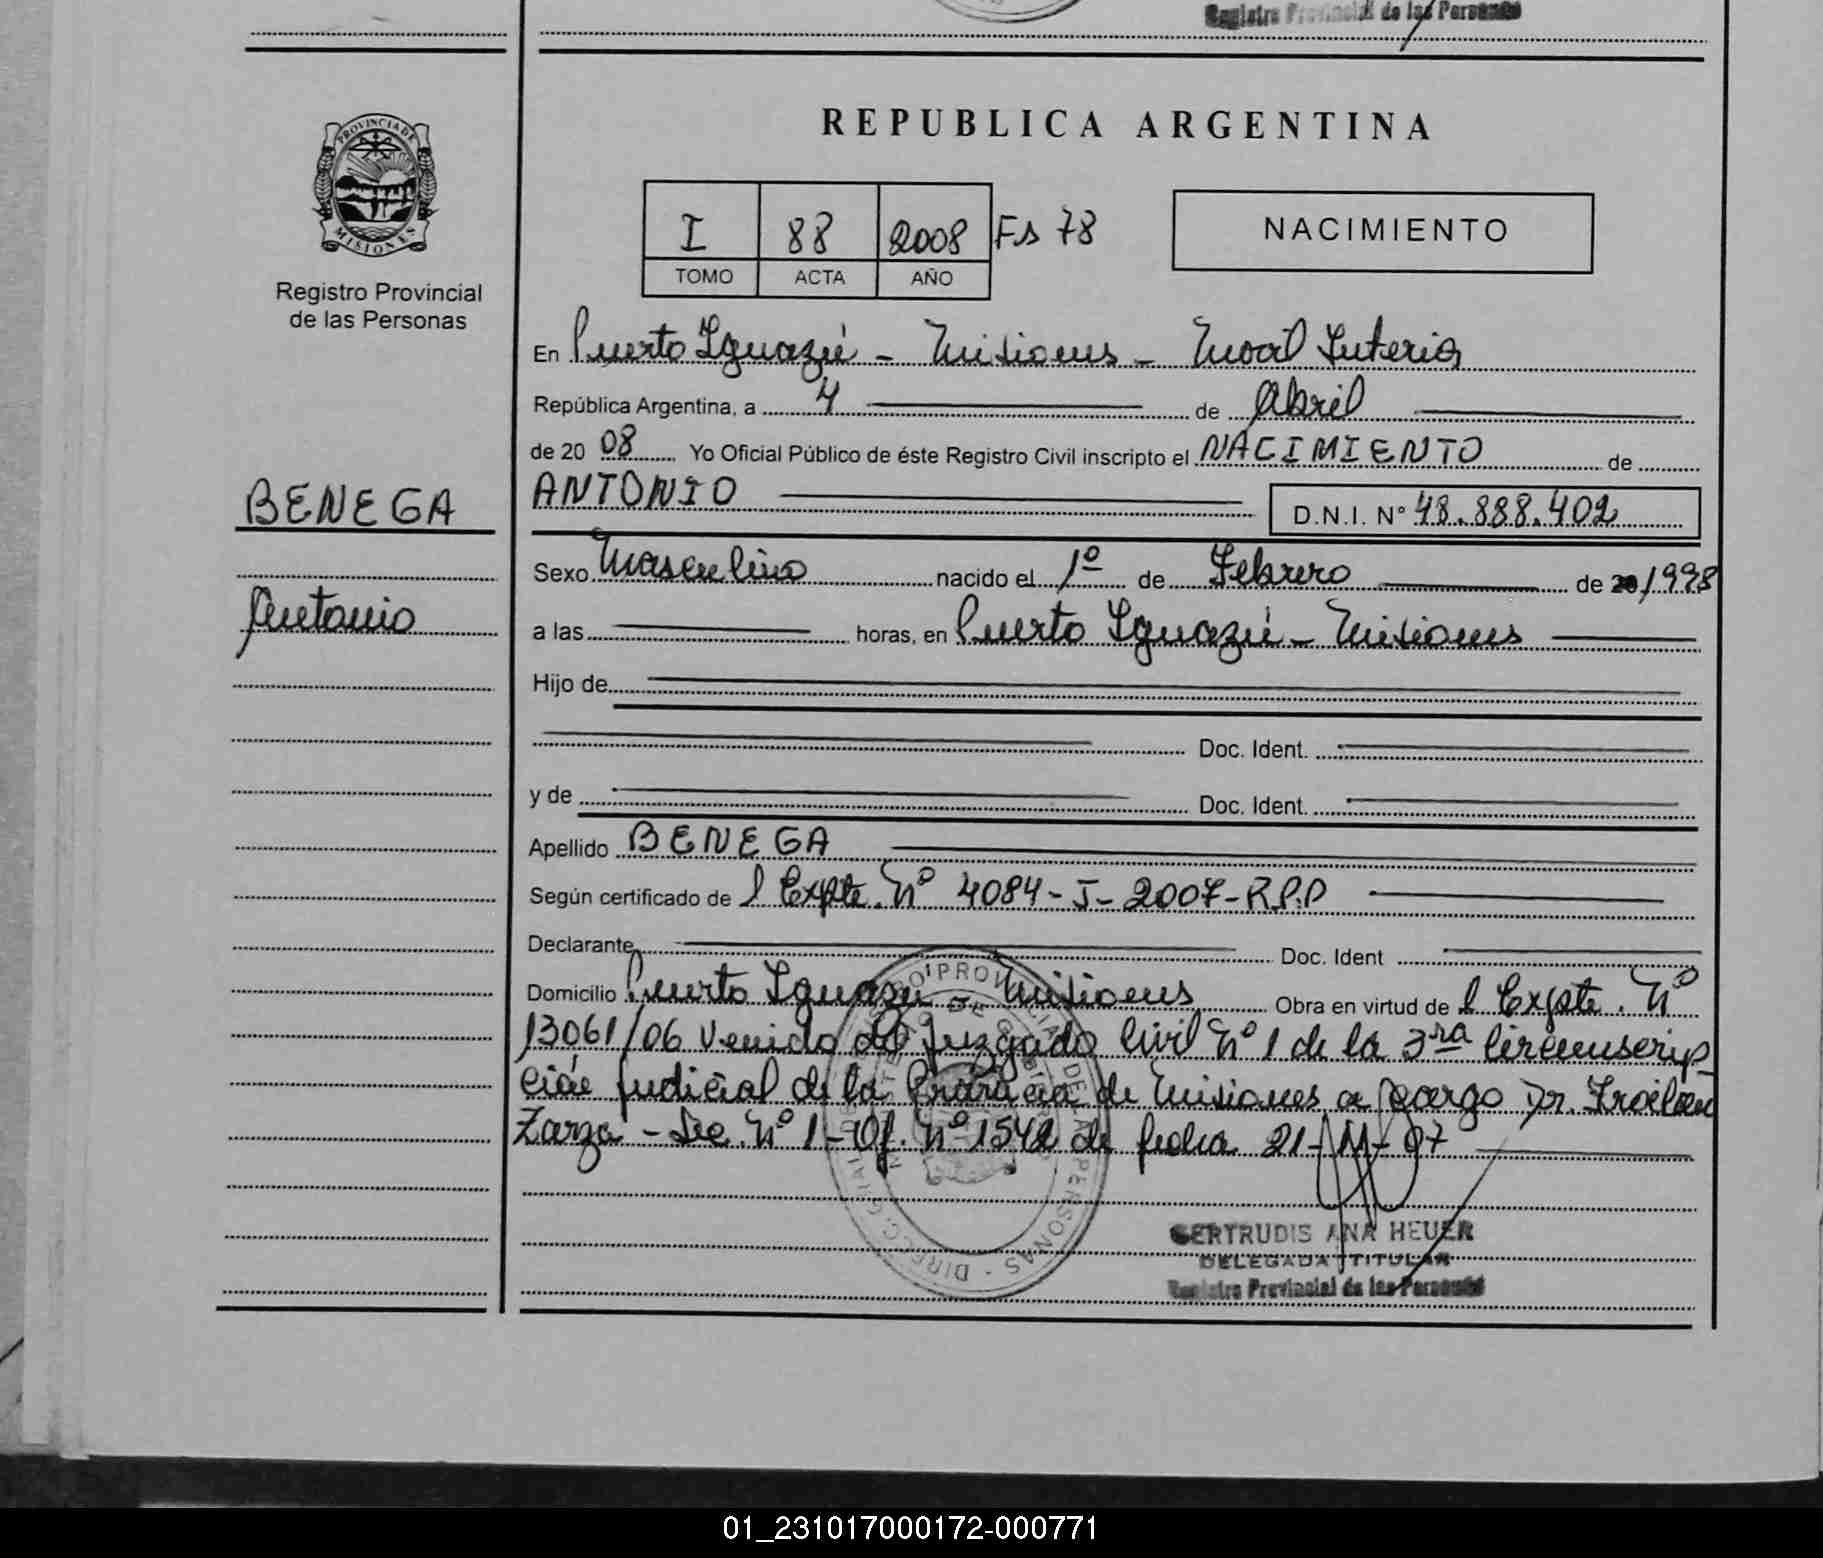 Registro Provincial de las Personas
PROVINCIA DE
MISIONES
Registro Provincial
de las Personas
REPUBLICA ARGENTINA
I 88 2008 Fs 78
TOMO ACTA AÑO
NACIMIENTO
En Puerto Iguazú - Misiones -
República Argentina, a 4 de Abril
de 20 08 Yo Oficial Público de éste Registro Civil inscripto el NACIMIENTO de
BENEGA
ANTONIO D.N.I. N° 48.888.402
Sexo Masculino nacido el 1º de Febrero de 20 1998
Antonio
a las horas, en Puerto Iguazú - Misiones
Hijo de
Doc. Ident.
y de Doc. Ident.
Apellido BENEGA
Según certificado de l Expte. Nº 4084-J-2007-R.P.P
Declarante Doc. Ident
Domicilio Puerto Iguazú - Misiones Obra en virtud de l Expte. Nº
13061/06 venido del Juzgado Civil Nº 1 de la 3ra Circunscrip
ción Judicial de la Provincia de Misiones a cargo Dr. Froilan
Zarza - Sec. Nº 1 - Of. Nº 1542 de fecha 21-11-07
GERTRUDIS ANA HEUER
DELEGADA TITULAR
Registro Provincial de las Personas
01_231017000172-000771